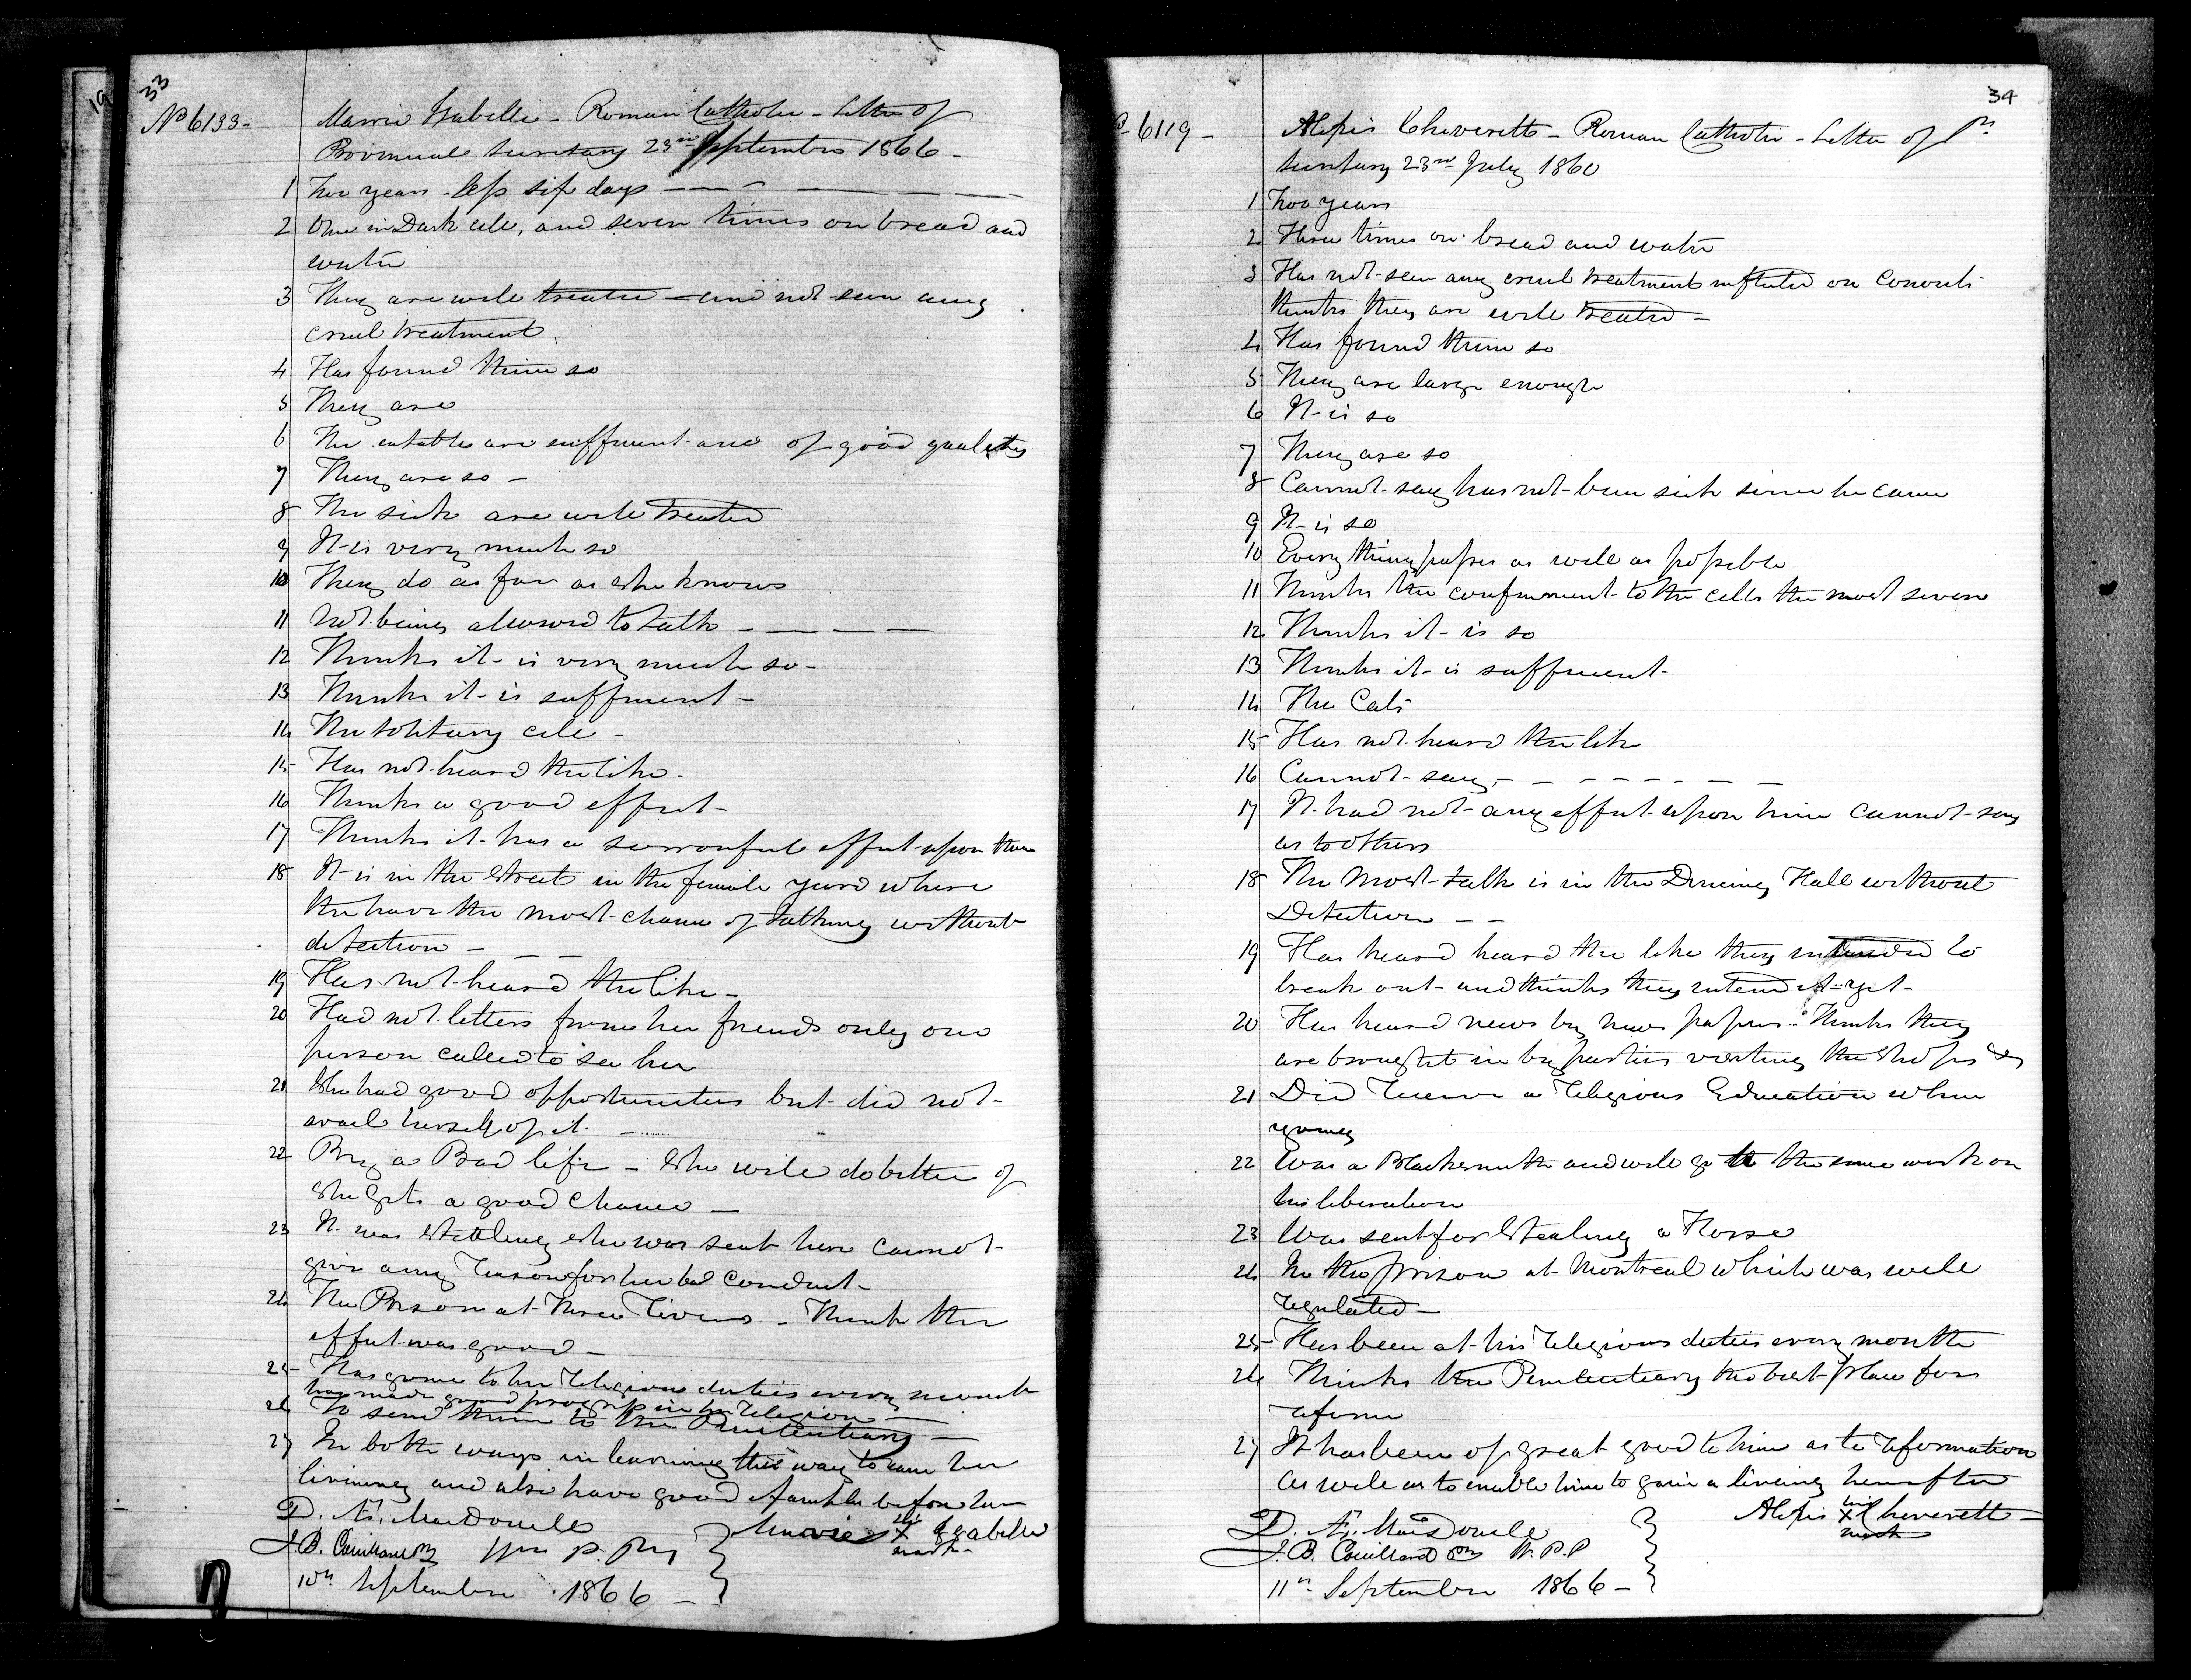 33
No 6133-
Marrie Isabelle - Roman Catholic - Letter of
Provincial Secretary 23rd September 1866 -
1 Two years less six days
2 Once in Dark cell, and seven times on bread and
water
3 They are well treated - and not seen any
cruel treatment
4 Has found them so
5 They are
6 The eatable are sufficient and of good quality
7 They are so -
8 The sick are well treated
9 It is very much so
10 They do as far as she knows
11 Not being allowed to talk
12 Thinks it is very much so -
13 Thinks it is sufficient -
14 The solitary cell -
15 Has not heard the like -
16 Thinks a good effect -
17 Thinks it has a sorrowful effect upon them
18 It is in the Street in the female yard where
the have the most chance of talking without
detection -
19 Has not heard the like -
20 Had not letters from her friends only one
person called to see her
21 She had good opportunities but did not
avail herself of it.
22 By a Bad life - She will do better if
She gets a good chance -
23 It was Stealing she was sent here cannot
give any reason for her bad conduct -
24 The Prison at Three Rivers - Think the
effect was good -
25 Has gone to her religious duties every month
has made good progress in her religion -
26 To send them to the Penitentiary -
27 In both ways in learning the way to earn her
living and also have good examples before her
D. Æ. MacDonell
J. B. Couillard
Marrie X Isabelle
mark
10th September 1866 -
34
6119 -
Alexis Cheverette - Roman Catholic - Letter of Pr.
Secretary 23rd July 1860
1 Two years
2 Three times on bread and water
3 Has not seen any cruel treatment inflicted on Convicts
thinks they are well treated -
4 Has found them so
5 They are large enough
6 It is so
7 They are so
8 Cannot say has not been sick since he came
9 It is so
10 Every thing passes as well as possible
11 Thinks the confinement to the cells the most severe
12 Thinks it is so
13 Thinks it is sufficient -
14 The Cats
15 Has not heard the like
16 Cannot say -
17 It had not any effect upon him cannot say
as to others
18 The most talk is in the Dining Hall without
Detection - -
19 Has heard heard the like they intended to
break out and thinks they intend it yet -
20 Has heard news by news papers. Thinks they
are brought in by parties visiting the shops &c
21 Did receive a religious Education when
young
22 Was a Blacksmith and will go to the same work on
his liberation
23 Was sent for Stealing a Horse
24 In the prison at Montreal which was well
regulated -
25 Has been at his religious duties every month
26 Thinks the Penitentiary the best place for
reform
27 It has been of great good to him as to reformation
as well as to enable him to gain a living hereafter
D. Æ. MacDonell
J. B. Couillard W.P.P
Alexis his X Cheverette -
mark
11th September 1866 -